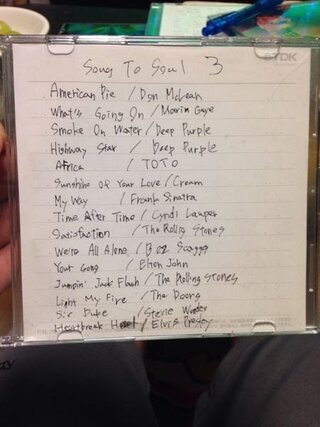 Song To Soul 3
TDK
American Pie / Don McLean
What's Going On / Marvin Gaye
Smoke On Water / Deep Purple
Highway Star / Deep Purple
Africa / TOTO
Sunshine of Your Love / Cream
My Way / Frank Sinatra
Time After Time / Cyndi Lauper
Satisfaction / The Rolling Stones
We're All Alone / Boz Scaggs
Your Song / Elton John
Jumpin' Jack Flash / The Rolling STONES
Light My Fire / The Doors
Sir Duke / Stevie Wonder
Heartbreak Hotel / Elvis Presley